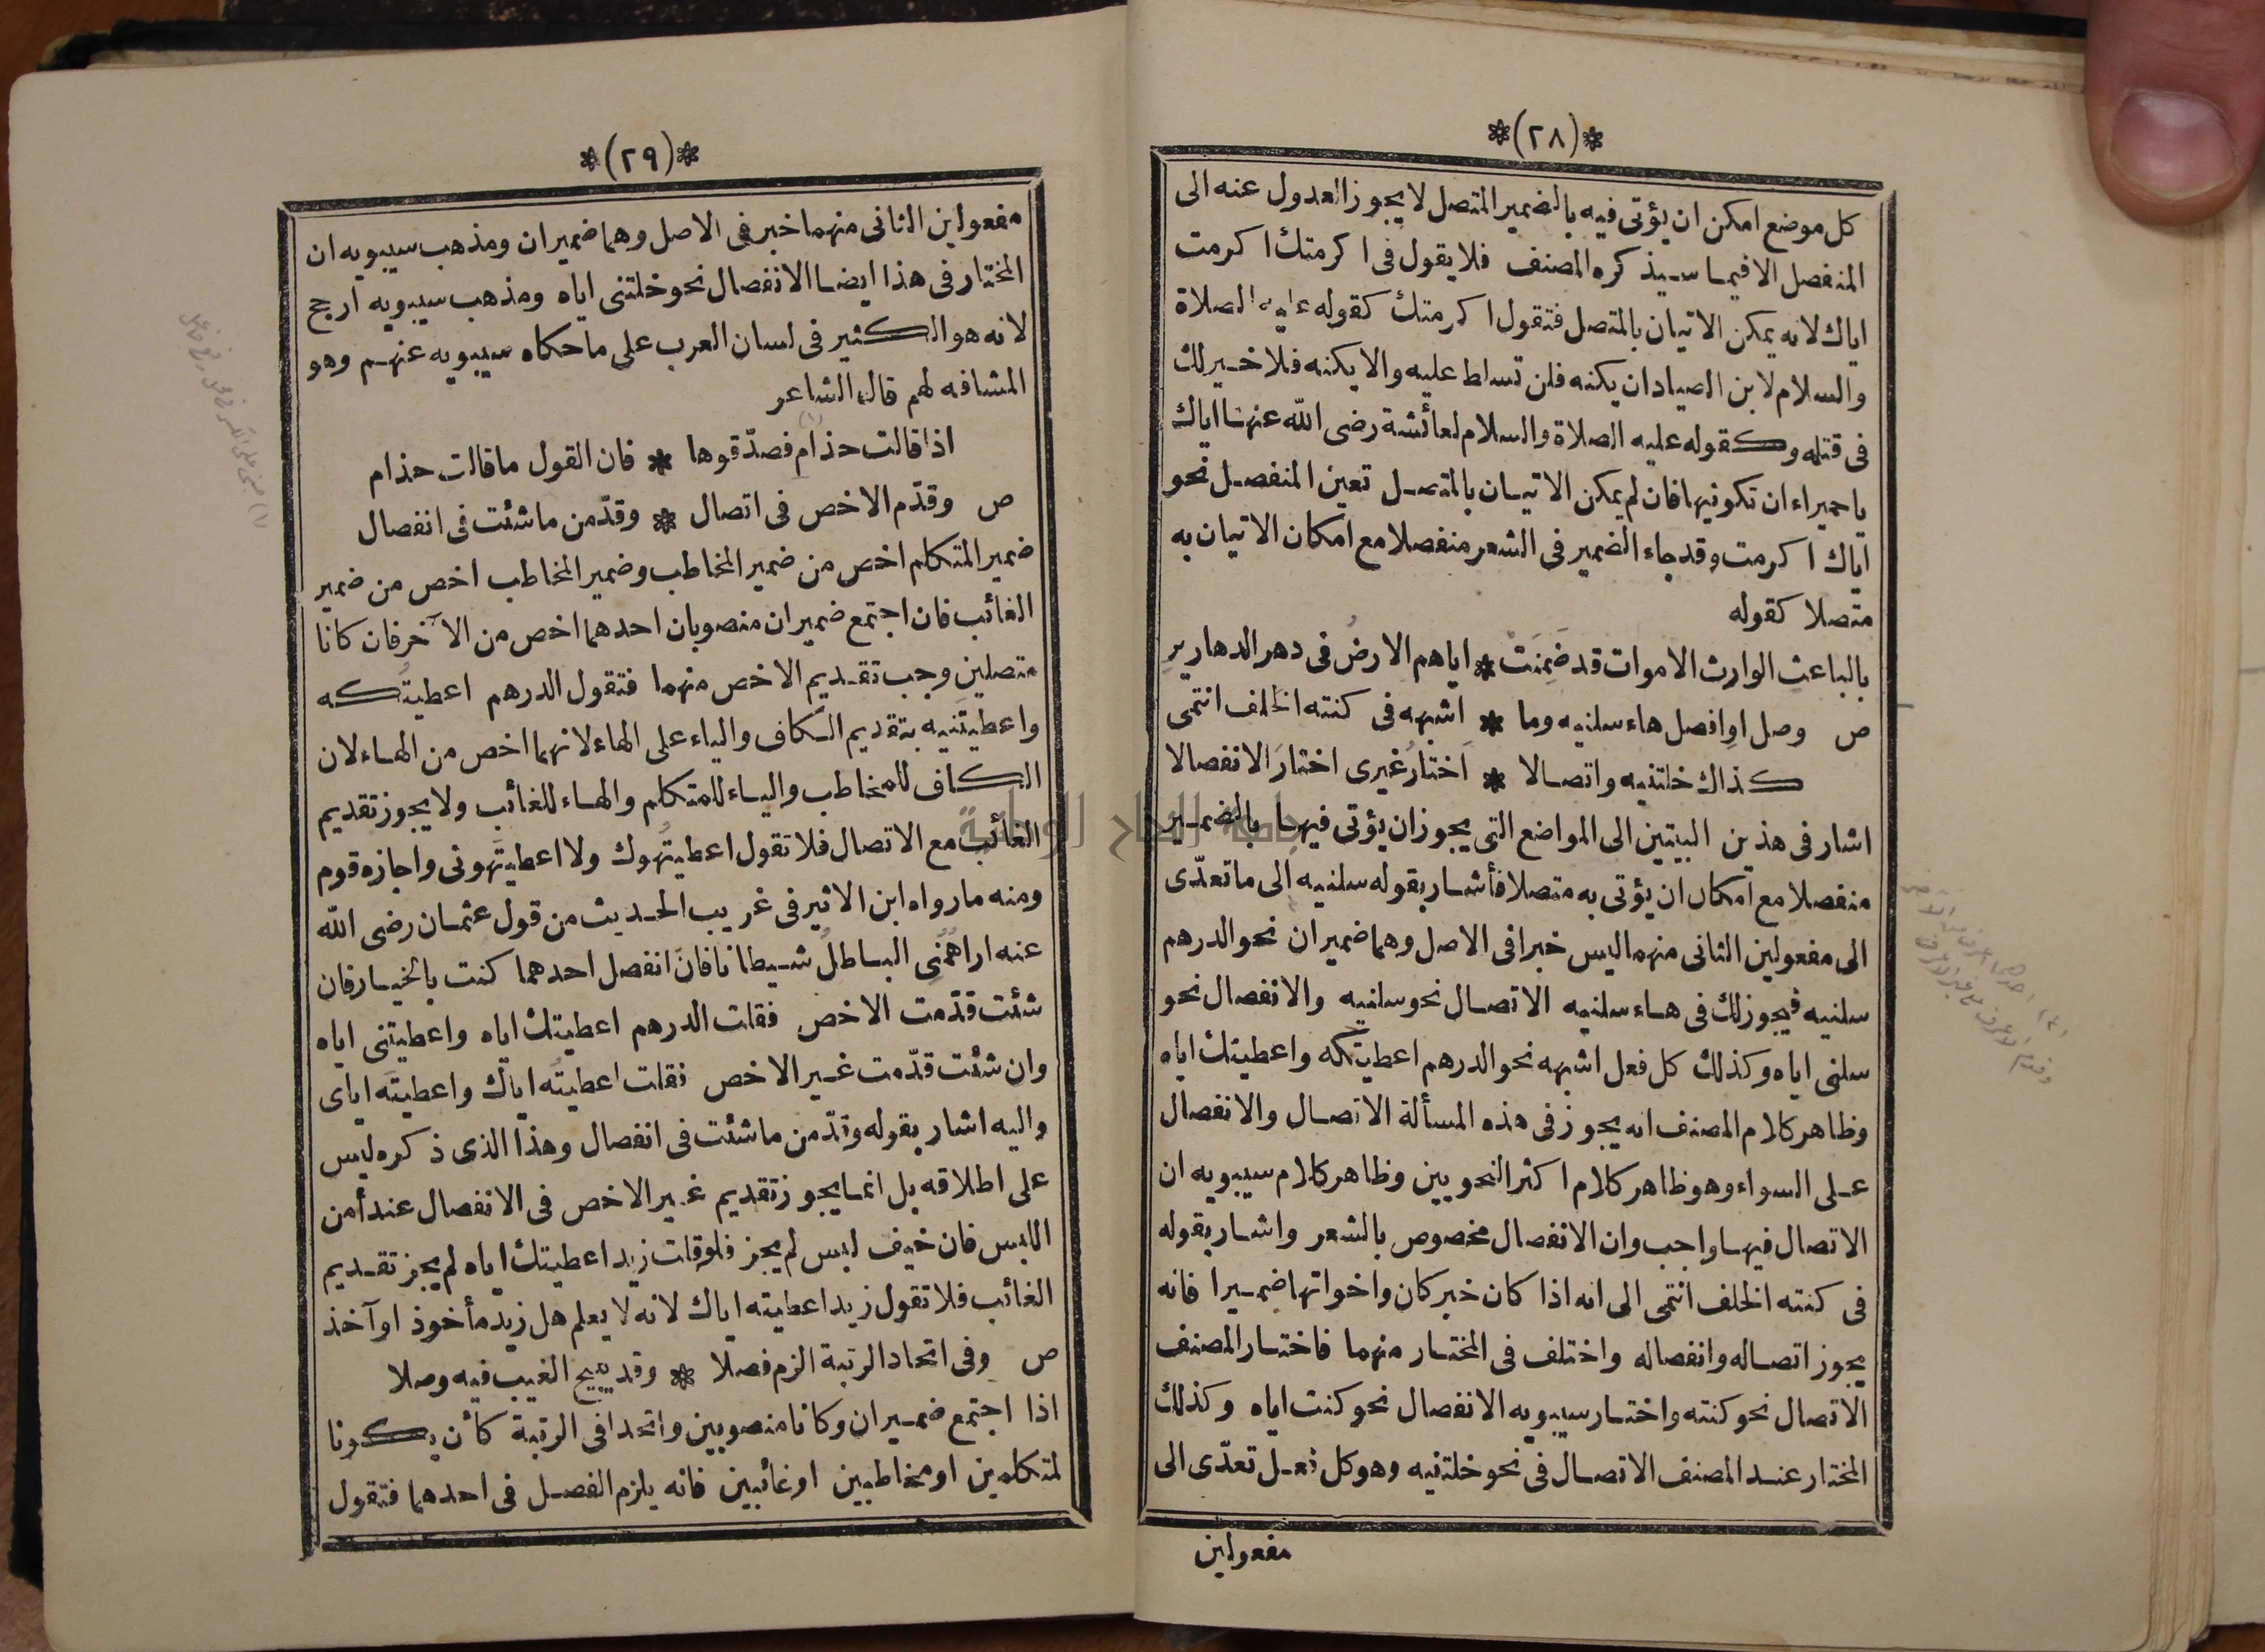 *(٢٨)*
كل موضع امكن ان يؤتى فيه بالضمير المتصل لا يجوز العدول عنه الى
المنفصل الا فيما سيذكره المصنف فلا يقول فى اكرمتك اكرمت
اياك لانه يمكن الاتيان بالمتصل فتقول اكرمتك كقوله عليه الصلاة
والسلام لابن الصياد ان يكنه فلن تسلط عليه والا يكنه فلا خير لك
فى قتله وكقوله عليه الصلاة والسلام لعائشة رضى الله عنها اياك
يا حميراء ان تكونيها فان لم يمكن الاتيان بالمتصل تعين المنفصل نحو
اياك اكرمت وقد جاء الضمير فى الشعر منفصلا مع امكان الاتيان به
متصلا كقوله
بالباعث الوارث الاموات قد ضَمِنَتْ * اياهم الارضُ فى دهر الدهاريرِ
ص وصل اوِ افصل هاء سلنيه وما * اشبهه فى كنته الخلف انتمى
كذاك خلتنيه واتصالا * اَختارُ غيرى اختارَ الانفصالا
اشار فى هذين البيتين الى المواضع التى يجوز ان يؤتى فيها بالضمير
منفصلا مع امكان ان يؤتى به متصلا فأشار بقوله سلنيه الى ما تعدّى
الى مفعولين الثانى منهما ليس خبرا فى الاصل وهما ضميران نحو الدرهم
سلنيه فيجوز لك فى هاء سلنيه الاتصال نحو سلنيه والانفصال نحو
سلنى اياه وكذلك كل فعل اشبهه نحو الدرهم اعطيتكه واعطيتك اياه
وظاهر كلام المصنف انه يجوز فى هذه المسألة الاتصال والانفصال
على السواء وهو ظاهر كلام اكثر النحويين وظاهر كلام سيبويه ان
الاتصال فيها واجب وان الانفصال مخصوص بالشعر واشار بقوله
فى كنته الخلف انتمى الى انه اذا كان خبر كان واخواتها ضميرا فانه
يجوز اتصاله وانفصاله واختلف فى المختار منهما فاختار المصنف
الاتصال نحو كنته واختار سيبويه الانفصال نحو كنت اياه وكذلك
المختار عند المصنف الاتصال فى نحو خلتنيه وهو كل فعل تعدّى الى
مفعولين
*(٢٩)*
مفعولين الثانى منهما خبر فى الاصل وهما ضميران ومذهب سيبويه ان
المختار فى هذا ايضا الانفصال نحو خلتنى اياه ومذهب سيبويه ارجح
لانه هو الكثير فى لسان العرب على ما حكاه سيبويه عنهم وهو
المشافه لهم قال الشاعر
اذا قالت حذام فصدّقوها * فان القول ما قالت حذام
ص وقدّم الاخص فى اتصال * وقدّمن ما شئت فى انفصال
ضمير المتكلم اخص من ضمير المخاطب وضمير المخاطب اخص من ضمير
الغائب فان اجتمع ضميران منصوبان احدهما اخص من الآخر فان كانا
متصلين وجب تقديم الاخص منهما فتقول الدرهم اعطيتُكه
واعطيتَنيه بتقديم الكاف والياء على الهاء لانهما اخص من الهاء لان
الكاف للمخاطب والياء للمتكلم والهاء للغائب ولا يجوز تقديم
الغائب مع الاتصال فلا تقول اعطيتُهوك ولا اعطيتَهونى واجازه قوم
ومنه مارواه ابن الاثير فى غريب الحديث من قول عثمان رضى الله
عنه اراهُمُنى الباطلُ شيطانا فان انفصل احدهما كنت بالخيار فان
شئت قدّمت الاخص فقلت الدرهم اعطيتك اياه واعطيتنى اياه
وان شئت قدّمت غير الاخص فقلت اعطيتُه اياك واعطيتَه اياى
واليه اشار بقوله وقدّمن ما شئت فى انفصال وهذا الذى ذكره ليس
على اطلاقه بل انما يجوز تقديم غير الاخص فى الانفصال عند أمن
اللبس فان خيف لبس لم يجز فلو قلت زيد اعطيتك اياه لم يجز تقديم
الغائب فلا تقول زيد اعطيته اياك لانه لا يعلم هل زيد مأخوذ او آخذ
ص وفى اتحاد الرتبة الزم فصلا * وقد يبيح الغيب فيه وصلا
اذا اجتمع ضميران وكانا منصوبين واتحدا فى الرتبة كأن يكونا
لمتكلمين او مخاطبين او غائبين فانه يلزم الفصل فى احدهما فتقول
جامعة النجاح الوطنية